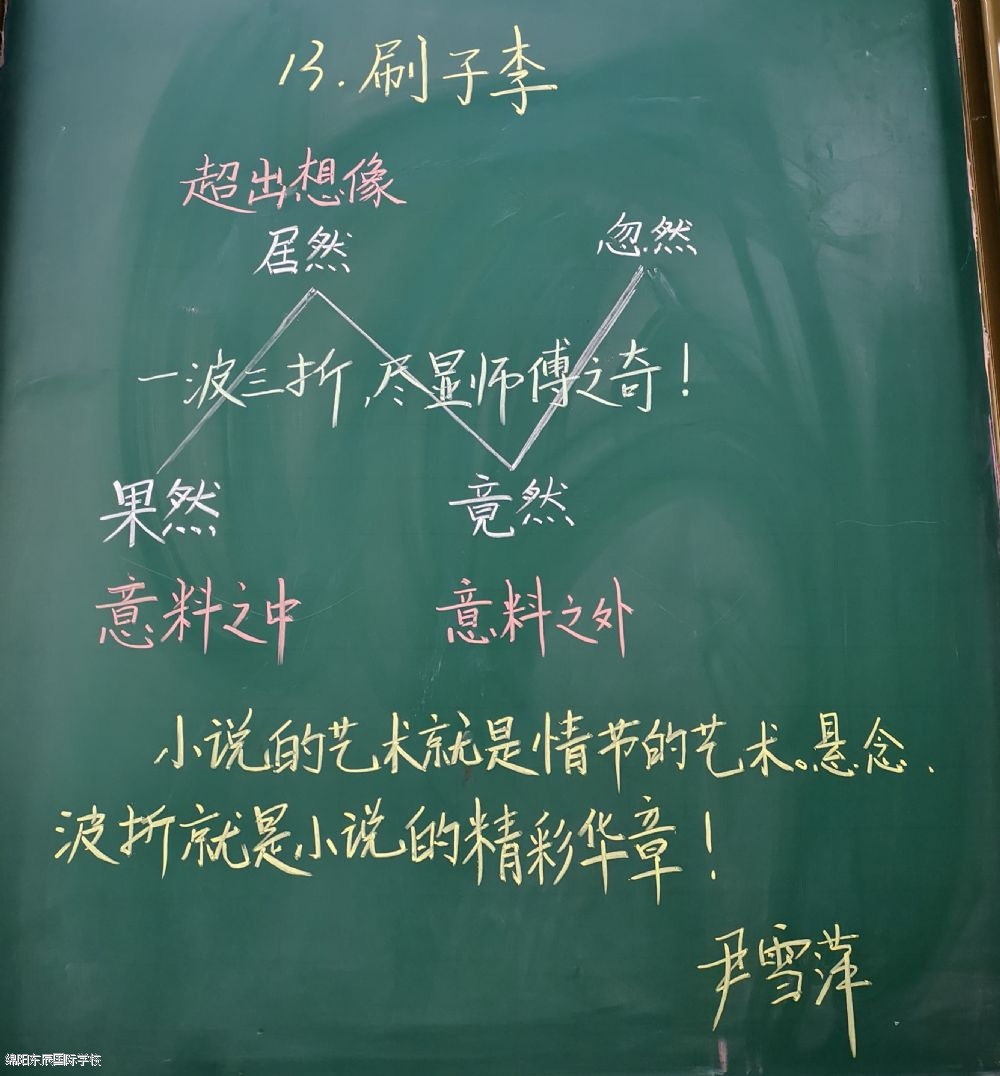 13.刷子李
超出想像
居然 忽然
一波三折,尽显师傅之奇!
果然 竟然
意料之中 意料之外
小说的艺术就是情节的艺术。悬念、
波折就是小说的精彩华章!
尹雪萍
绵阳东辰国际学校